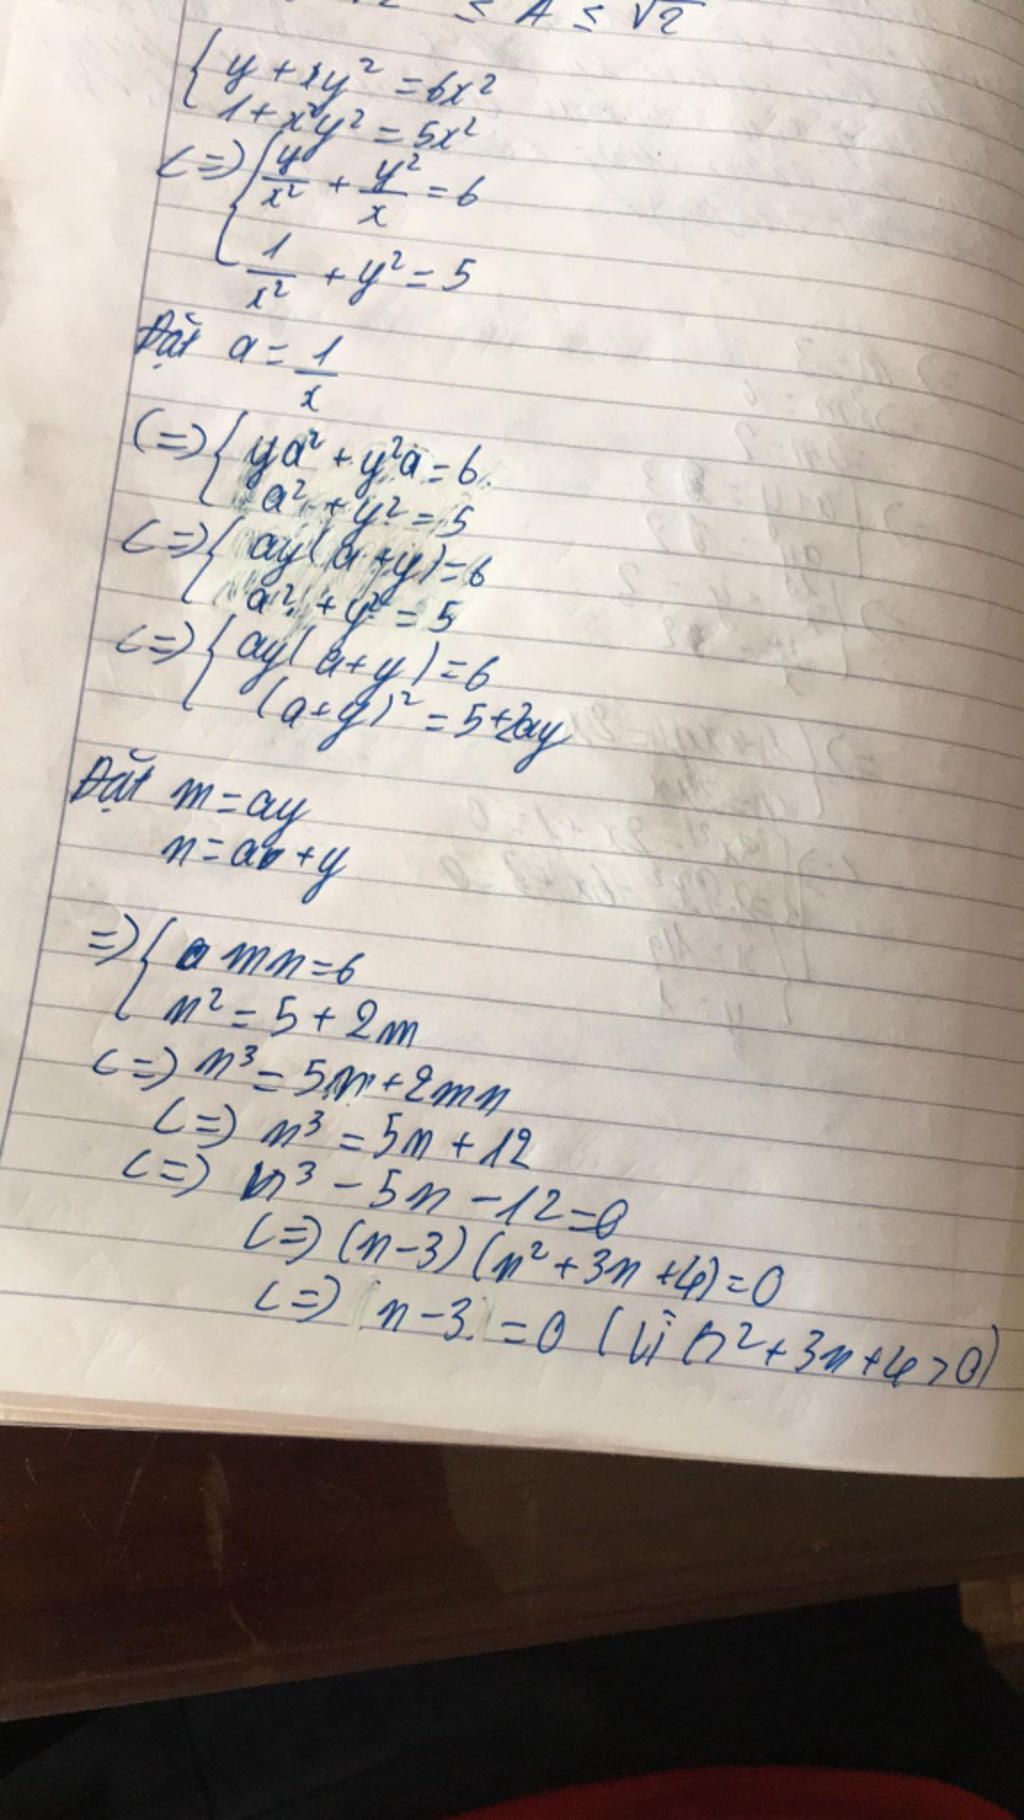 ≤ A ≤ √2
{ y + xy² = 6x²
1 + x²y² = 5x²
(=) { y/x² + y²/x = 6
1/x² + y² = 5
Đặt a = 1/x
(=) { ya² + y²a = 6
a² + y² = 5
(=) { ay(a+y) = 6
a² + y² = 5
(=) { ay(a+y) = 6
(a+y)² = 5+2ay
Đặt m = ay
n = a + y
=) { mn = 6
n² = 5 + 2m
(=) n³ = 5n + 2mn
(=) n³ = 5n + 12
(=) n³ - 5n - 12 = 0
(=) (n-3)(n² + 3n + 4) = 0
(=) n - 3 = 0 (Vì n² + 3n + 4 > 0)